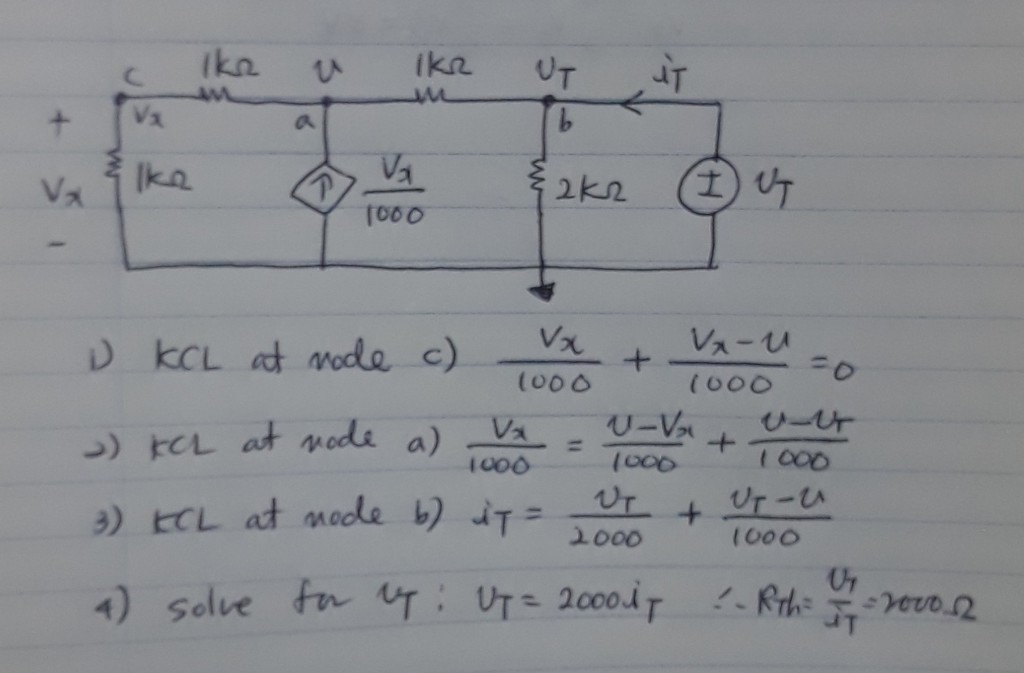 1kΩ u 1kΩ υT iT
c
+ Vx a b
Vx 1kΩ Vx/1000 2kΩ I υT
-
1) KCL at node c) Vx/1000 + Vx-u/1000 =0
2) KCL at node a) Vx/1000 = u-Vx/1000 + u-υT/1000
3) KCL at node b) iT = υT/2000 + υT-u/1000
4) solve for υT : υT = 2000iT ∴ RTh= υT/iT =2000Ω